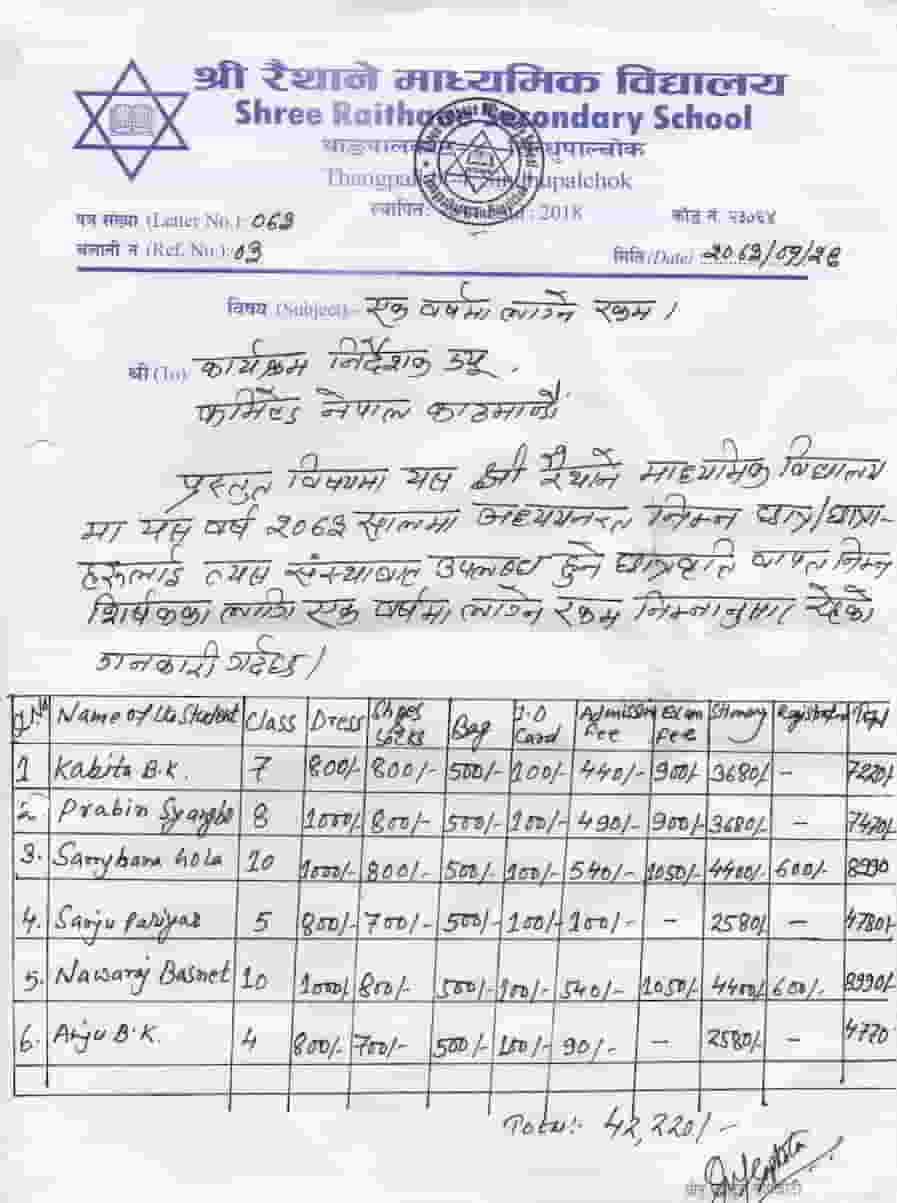 श्री रैथाने माध्यमिक विद्यालय
Shree Raithane Secondary School
थाङपाल सिन्धुपाल्चोक
Sindhupalchok
स्थापित: 2018
पत्र संख्या (Letter No.): 063
कोड नं. २३०६४
चलानी नं (Ref. No.): 03
मिति (Date) 2063/09/28
विषय (Subject):- एक वर्षमा लाग्ने रकम ।
श्री (To) कार्यक्रम निर्देशक ज्यू .
नेपाल काठमाण्डौ
प्रस्तुत विषयमा यस श्री रैथाने माध्यमिक विद्यालय
मा यस वर्ष 2063 सालमा अध्ययनरत निम्न छात्र/छात्रा-
हरुलाई त्यस संस्थाबाट उपलब्ध हुने छात्रवृति वापत निम्न
शिर्षकका लागि एक वर्षमा लाग्ने रकम निम्नानुसार रहेको
जानकारी गर्दछु।
S.N. Name of the Student Class Dress Shoes Socks Bag I.D Card Admission Fee Exam Fee Stionary Registration Total
1 Kabita B.K. 7 800/- 800/- 500/- 100/- 440/- 900/- 3680/- - 7220/-
2. Prabin Syangbo 8 1000/- 800/- 500/- 100/- 490/- 900/- 3680/- - 7470/-
3. 10 1000/- 800/- 500/- 100/- 540/- 1050/- 4400/- 600/- 8990
4. Sanju Pariyar 5 800/- 700/- 500/- 100/- 100/- - 2580/- - 4780/-
5. Nawaraj Basnet 10 1000/- 800/- 500/- 100/- 540/- 1050/- 4400/- 600/- 8990/-
6. Anju B.K. 4 800/- 700/- 500/- 100/- 90/- - 2580/- - 4770
Total:- 42,220/-